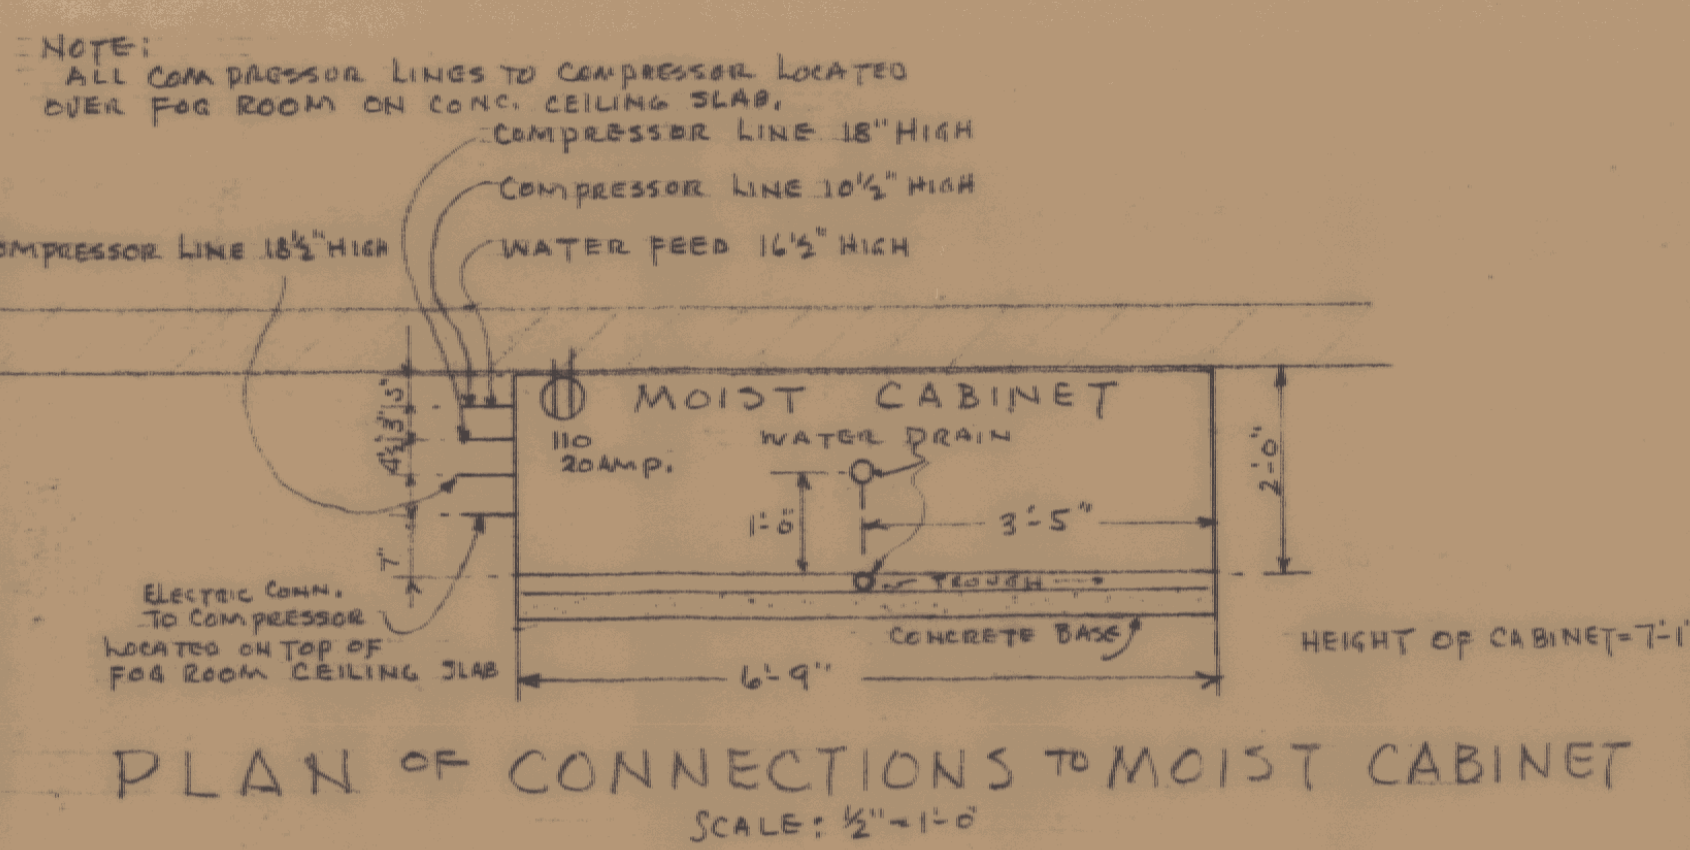 NOTE:
ALL COMPRESSOR LINES TO COMPRESSOR LOCATED
OVER FOG ROOM ON CONC. CEILING SLAB.
COMPRESSOR LINE 18" HIGH
COMPRESSOR LINE 10½" HIGH
OMPRESSOR LINE 18½" HIGH
WATER FEED 16½" HIGH
5"
3"
4½"
7"
MOIST CABINET
110
20 AMP.
WATER DRAIN
1'-0"
3'-5"
2'-0"
TROUGH
CONCRETE BASE
6'-9"
ELECTRIC CONN.
TO COMPRESSOR
LOCATED ON TOP OF
FOG ROOM CEILING SLAB
HEIGHT OF CABINET=7'-1"
PLAN OF CONNECTIONS TO MOIST CABINET
SCALE: ½"=1'-0"